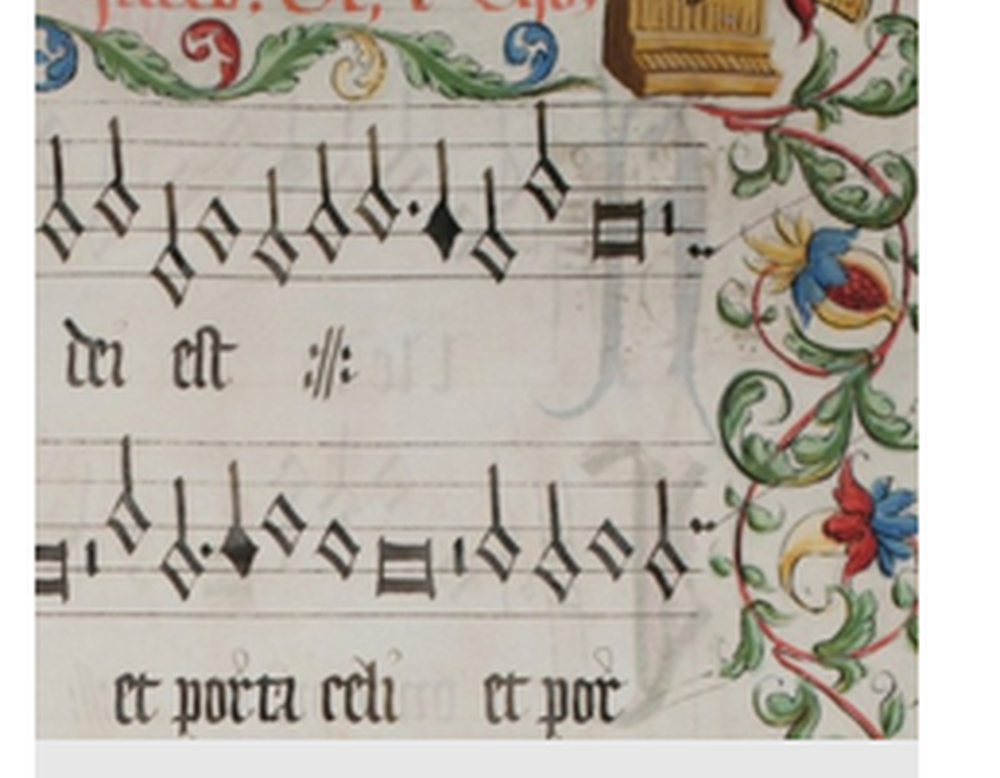 dei est ://:
et porta celi et por